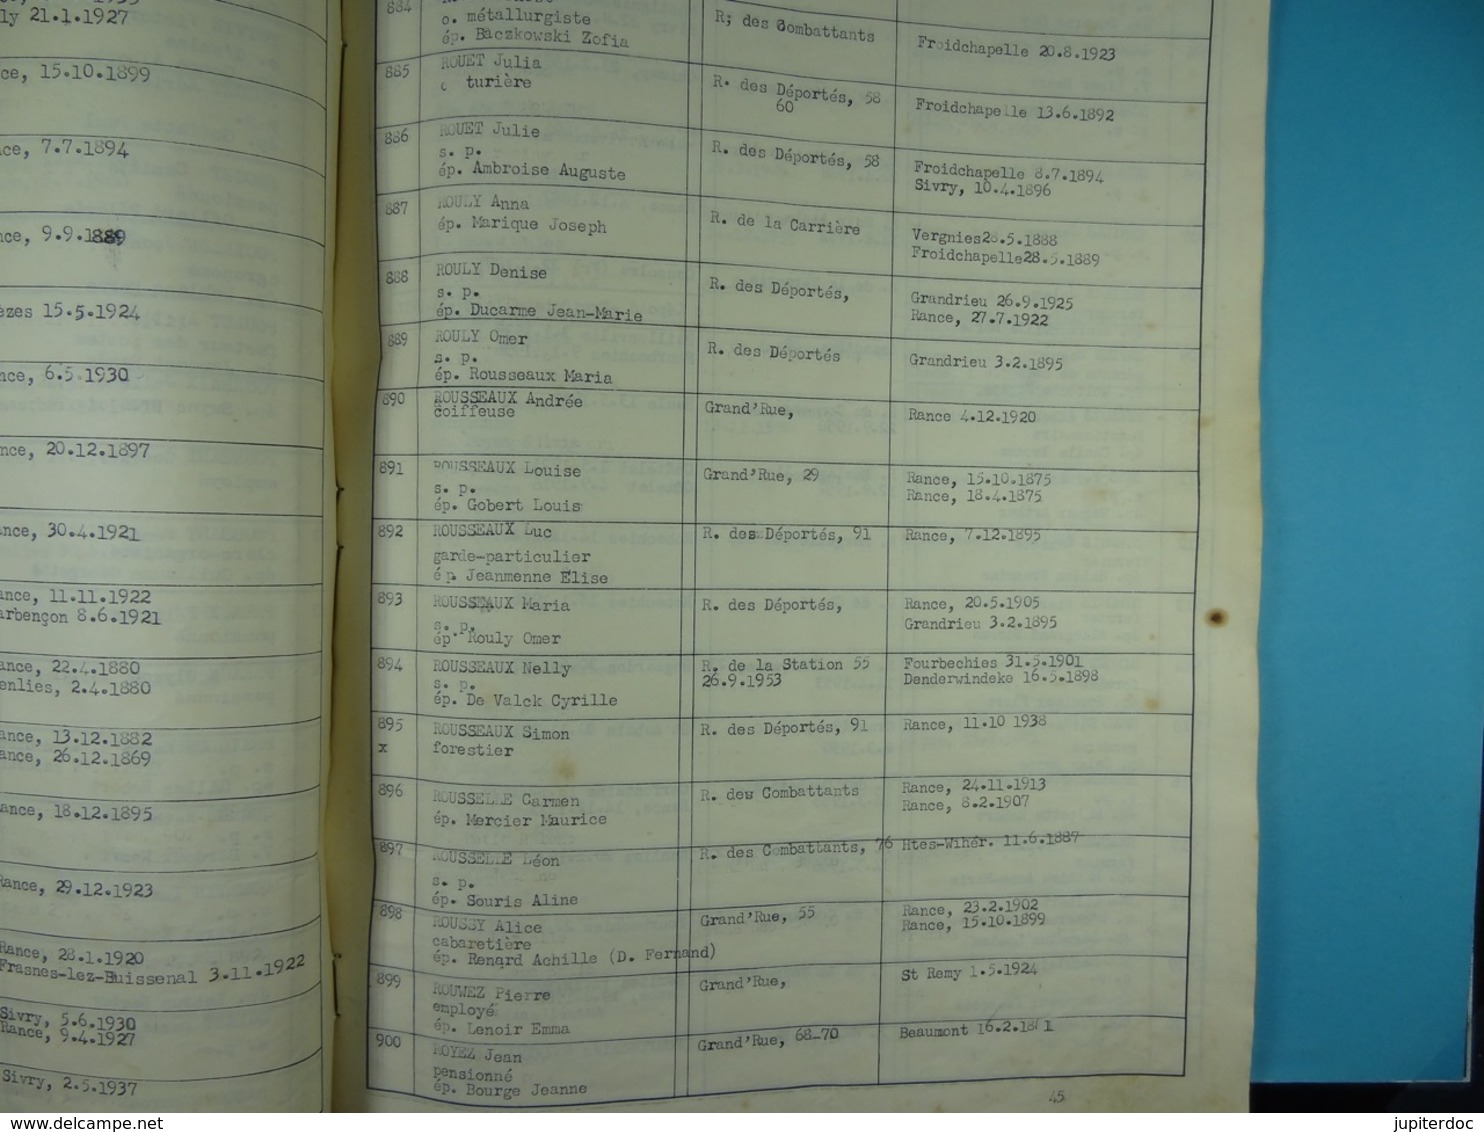 ly 21.1.1927
ce, 15.10.1899
ce, 7.7.1894
nce, 9.9.1889
èzes 15.5.1924
nce, 6.5.1930
nce, 20.12.1897
ance, 30.4.1921
ance, 11.11.1922
arbençon 8.6.1921
ance, 22.4.1880
enlies, 2.4.1880
ance, 13.12.1882
ance, 26.12.1869
ance, 18.12.1895
Rance, 29.12.1923
Rance, 28.1.1920
Frasnes-lez-Buissenal 3.11.1922
Sivry, 5.6.1930
Rance, 9.4.1927
Sivry, 2.5.1937
884
o. métallurgiste
ép. Baczkowski Zofia
R; des Combattants
Froidchapelle 20.8.1923
885
ROUET Julia
c turière
R. des Déportés, 58
60
Froidchapelle 13.6.1892
886
ROUET Julie
s. p.
ép. Ambroise Auguste
R. des Déportés, 58
Froidchapelle 8.7.1894
Sivry, 10.4.1896
887
ROULY Anna
ép. Marique Joseph
R. de la Carrière
Vergnies 28.5.1888
Froidchapelle 28.5.1889
888
ROULY Denise
s. p.
ép. Ducarme Jean-Marie
R. des Déportés,
Grandrieu 26.9.1925
Rance, 27.7.1922
889
ROULY Omer
s. p.
ép. Rousseaux Maria
R. des Déportés
Grandrieu 3.2.1895
890
ROUSSEAUX Andrée
coiffeuse
Grand'Rue,
Rance 4.12.1920
891
ROUSSEAUX Louise
s. p.
ép. Gobert Louis
Grand'Rue, 29
Rance, 15.10.1875
Rance, 18.4.1875
892
ROUSSEAUX Luc
garde-particulier
ép. Jeanmenne Elise
R. des Déportés, 91
Rance, 7.12.1895
893
ROUSSEAUX Maria
s. p.
ép. Rouly Omer
R. des Déportés,
Rance, 20.5.1905
Grandrieu 3.2.1895
894
ROUSSEAUX Nelly
s. p.
ép. De Valck Cyrille
R. de la Station 55
26.9.1953
Fourbechies 31.5.1901
Denderwindeke 16.5.1898
895
x
ROUSSEAUX Simon
forestier
R. des Déportés, 91
Rance, 11.10 1938
896
ROUSSELLE Carmen
ép. Mercier Maurice
R. des Combattants
Rance, 24.11.1913
Rance, 8.2.1907
897
ROUSSELLE Léon
s. p.
ép. Souris Aline
R. des Combattants, 76
Htes-Wihér. 11.6.1887
898
ROUSSY Alice
cabaretière
ép. Renard Achille (D. Fernand)
Grand'Rue, 55
Rance, 23.2.1902
Rance, 15.10.1899
899
ROUWEZ Pierre
employé
ép. Lenoir Emma
Grand'Rue,
St Remy 1.5.1924
900
ROYEZ Jean
pensionné
ép. Bourge Jeanne
Grand'Rue, 68-70
Beaumont
45
jupiterdoc